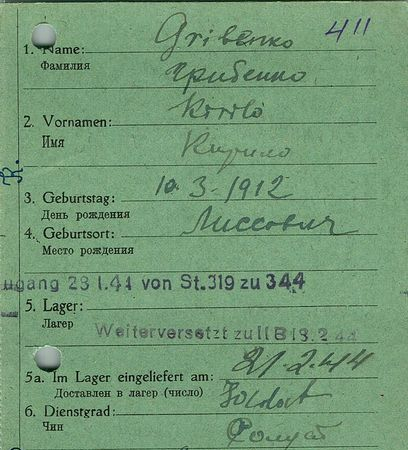 411
1. Name: Gribenko
Фамилия Грибенко
2. Vornamen: Kirilo
Имя Кирило
3. Geburtstag: 10.3-1912
День рождения
4. Geburtsort: Лиссович
Место рождения
ugang 23 1.44 von St.319 zu 344
5. Lager:
Лагер
Weiterversetzt zu II B 13.2.44
5a. Im Lager eingeliefert am: 21.2.44
Доставлен в лагер (число)
6. Dienstgrad: Soldat
Чин Солдат